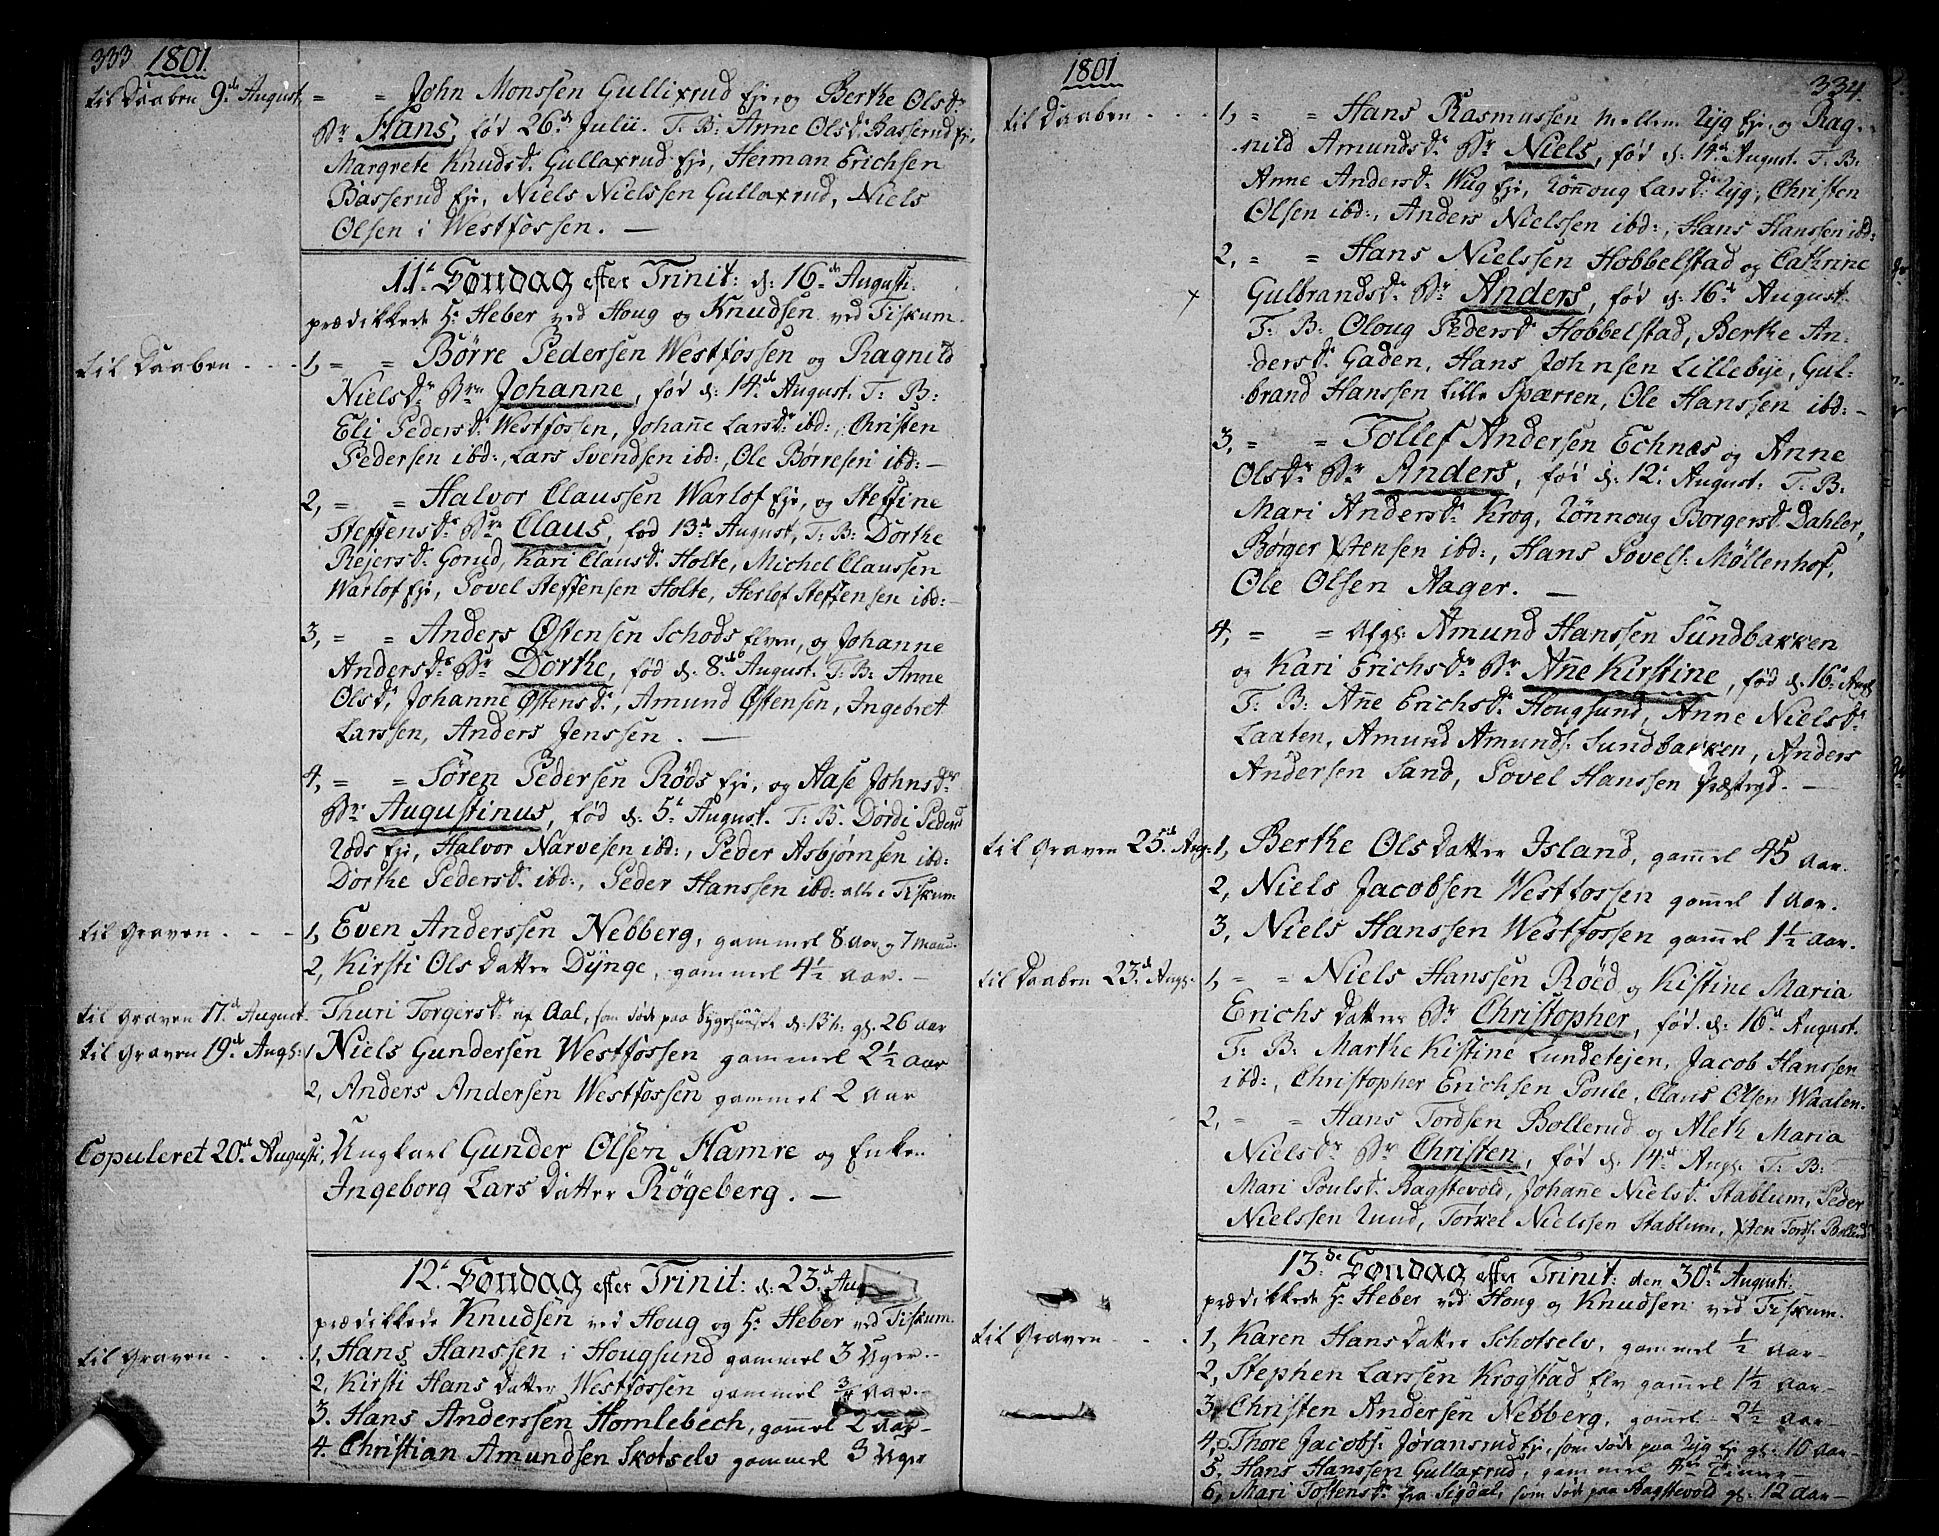 333 1801.
til Daaben 9de August, = = John Monssen Gullixrud Eje, og Berthe Olsdr
Br Hans, fød 26de Julii. T: B: Anne Olsdr Basserud Eje,
Margrete Knudsdr Gullaxrud Eje, Herman Erichsen
Basserud Eje, Niels Nielssen Gullaxrud, Niels
Olsen i Westfossen. —
11te Søndag efter Trinit: d: 16de Augusti.
prædikkede Hr Heber ved Houg og Knudsen ved Fiskum.
til Daaben . . . 1, = = Børre Pedersen Westfossen og Ragnild
Nielsdr Brn Johanne, fød d: 14de August. T: B:
Eli Pedersdr Westfossen, Johane Larsdr ibd:, Christen
Pedersen ibd:, Lars Svendsen ibd:, Ole Børresen ibd: —
2, = = Halvor Claussen Warlof Eje, og Steffine
Steffensdr Brn Claus, fød 13de August, T: B: Dorthe
Rejersdr Gorud, Kari Clausdr Holte, Michel Claussen
Warlof Eje, Povel Steffensen Holte, Herlof Steffensen ibd: —
3, = = Anders Østensen Schods Elven, og Johanne
Andersdr Br Dorthe, fød d: 8de August. T: B: Anne
Olsdr, Johanne Østensdr, Amund Østensen, Ingebret
Larssen, Anders Jenssen. —
4, = = Søren Pedersen Røds Eje, og Aase Johnsdr
Br Augustinus, fød d: 5te August. T: B. Dordi Peders
Røds Eje, Halvor Narvesen ibd:, Peder Asbjørnsen ibd:
Dorthe Pedersdr ibd:, Peder Hanssen ibd: alle i Fiskum
til Graven . - - 1, Even Anderssen Nebberg, gammel 8 Aar og 7 Maan:
2, Kirsti Olsdatter Dynge, gammel 4½ Aar. —
til Graven 17de August. Thuri Torgersdr af Aal, som døde paa Sygehuuset d: 13h: gl: 26 Aar
til Graven 19de Augs: 1, Niels Gundersen Westfossen gammel 2½ Aar
2, Anders Andersen Westfossen gammel 2 Aar
Copuleret 20de Augusti, Ungkarl Gunder Olsen Hamre og Enken
Ingeborg Larsdatter Røgeberg. —
12te Søndag efter Trinit: d: 23de Aug
prædikkede Knudsen ved Houg og Hr Heber ved Fiskum.
til Graven . . . 1, Hans Hanssen i Hougsund gammel 3 Uger. —
2, Kirsti Hansdatter Westfossen gammel ¾ Aar. —
3. Hans Anderssen Homlebech, gamel 2 Aar —
4. Christian Amundsen Skotselv gammel 3 Uger
1801 334.
til Daaben . . . 1, = = Hans Rasmussen Mellem Ryg Eje, og Rag-
nild Amundsdr Br Niels, fød d: 14de August. T: B:
Anne Andersdr Wug Eje, Rønnoug Larsdr Ryg, Christen
Olsen ibd:, Anders Nielssen ibd:, Hans Hanssen ibd:
2, = = Hans Nielssen Hobbelstad og Cathrine
Gulbrandsdr Br Anders, fød d: 16de August.
T: B: Oloug Pedersdr Hobbelstad, Berthe An-
dersdr Gaden, Hans Johnsen Lillebye, Gul-
brand Hanssen Lille Spærren, Ole Hanssen ibd: —
3, = = Tollef Andersen Echnæs og Anne
Olsdr Br Anders, fød d: 12te August. T: B:
Mari Andersdr Krog, Rønnoug Borgersdr Dahler,
Børger Xstensen ibd:, Hans Povels: Møllenhof,
Ole Olsen Aager. —
4, = = Afgl: Amund Hanssen Sundbakken
og Kari Erichsdr Br Ane Kirstine, fød d: 16de Augs
T: B: Ane Erichsdr Hougsund, Anne Nielsdr
Laaten, Amund Amunds: Sundbakken, Anders
Andersen Sand, Povel Hanssen Præstryd. —
til Graven 25de Aug: 1, Berthe Olsdatter Island, gamel 45 Aar.
2, Niels Jacobsen Westfossen gamel 1 Aar.
3, Niels Hanssen Westfossen gamel 1½ Aar.
til Daaben 23de Augs. 1, = = Niels Hanssen Røed og Kistine Maria
Erichsdatter Br Christopher, fød d: 16de August.
T: B: Marthe Kistine Lundetejen, Jacob Hanssen
ibd:, Christopher Erichsen Poule, Claus Olsen Waalen.
2, = = Hans Tordsen Bollerud og Aleth Maria
Nielsdr Br Christen, fød d: 14de Augs: T: B:
Mari Poulsdr Aagstevold, Johane Nielsdr Stablum, Peder
Nielssen Ruud, Torkel Nielssen Stablum, Xsten Tords: Bollerud
13de Søndag efter Trinit: den 30te Augusti.
prædikkede Hr Heber ved Houg og Knudsen ved Fiskum.
til Graven . . . 1, Karen Hansdatter Schotselv, gammel ½ Aar —
2, Stephen Larssen Krogstad Elv gamel 1½ Aar —
3, Christen Andersen Nebberg, gamel 2½ Aar —
4, Thore Jacobs: Jøransrud Eje, som døde paa Ryg Eje gl: 10 Aar —
5. Hans Hanssen Gullaxrud, gammel Timer —
6, Mari Tostensdr fra Sigdal, som døde paa Aagstevold gl: 12 Aar —